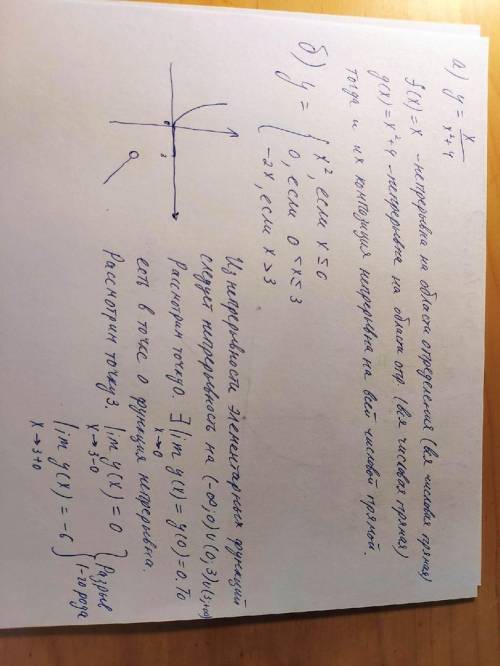 а) y = x/(x²+4)
f(x) = x - непрерывна на области определения (вся числовая прямая)
g(x) = x²+4 - непрерывна на области опр (вся числовая прямая)
тогда и их композиция непрерывна на всей числовой прямой.
б) y = { x², если x ≤ 0
0, если 0 < x ≤ 3
-2x, если x > 3
Из непрерывности элементарных функций
следует непрерывность на (-∞; 0) ∪ (0, 3) ∪ (3, +∞)
Рассмотрим точку 0. ∃ lim y(x) = y(0) = 0. То
x→0
есть в точке 0 функция непрерывна.
Рассмотрим точку 3. lim y(x) = 0 } Разрыв
x→3-0
lim y(x) = -6 } 1-го рода
x→3+0